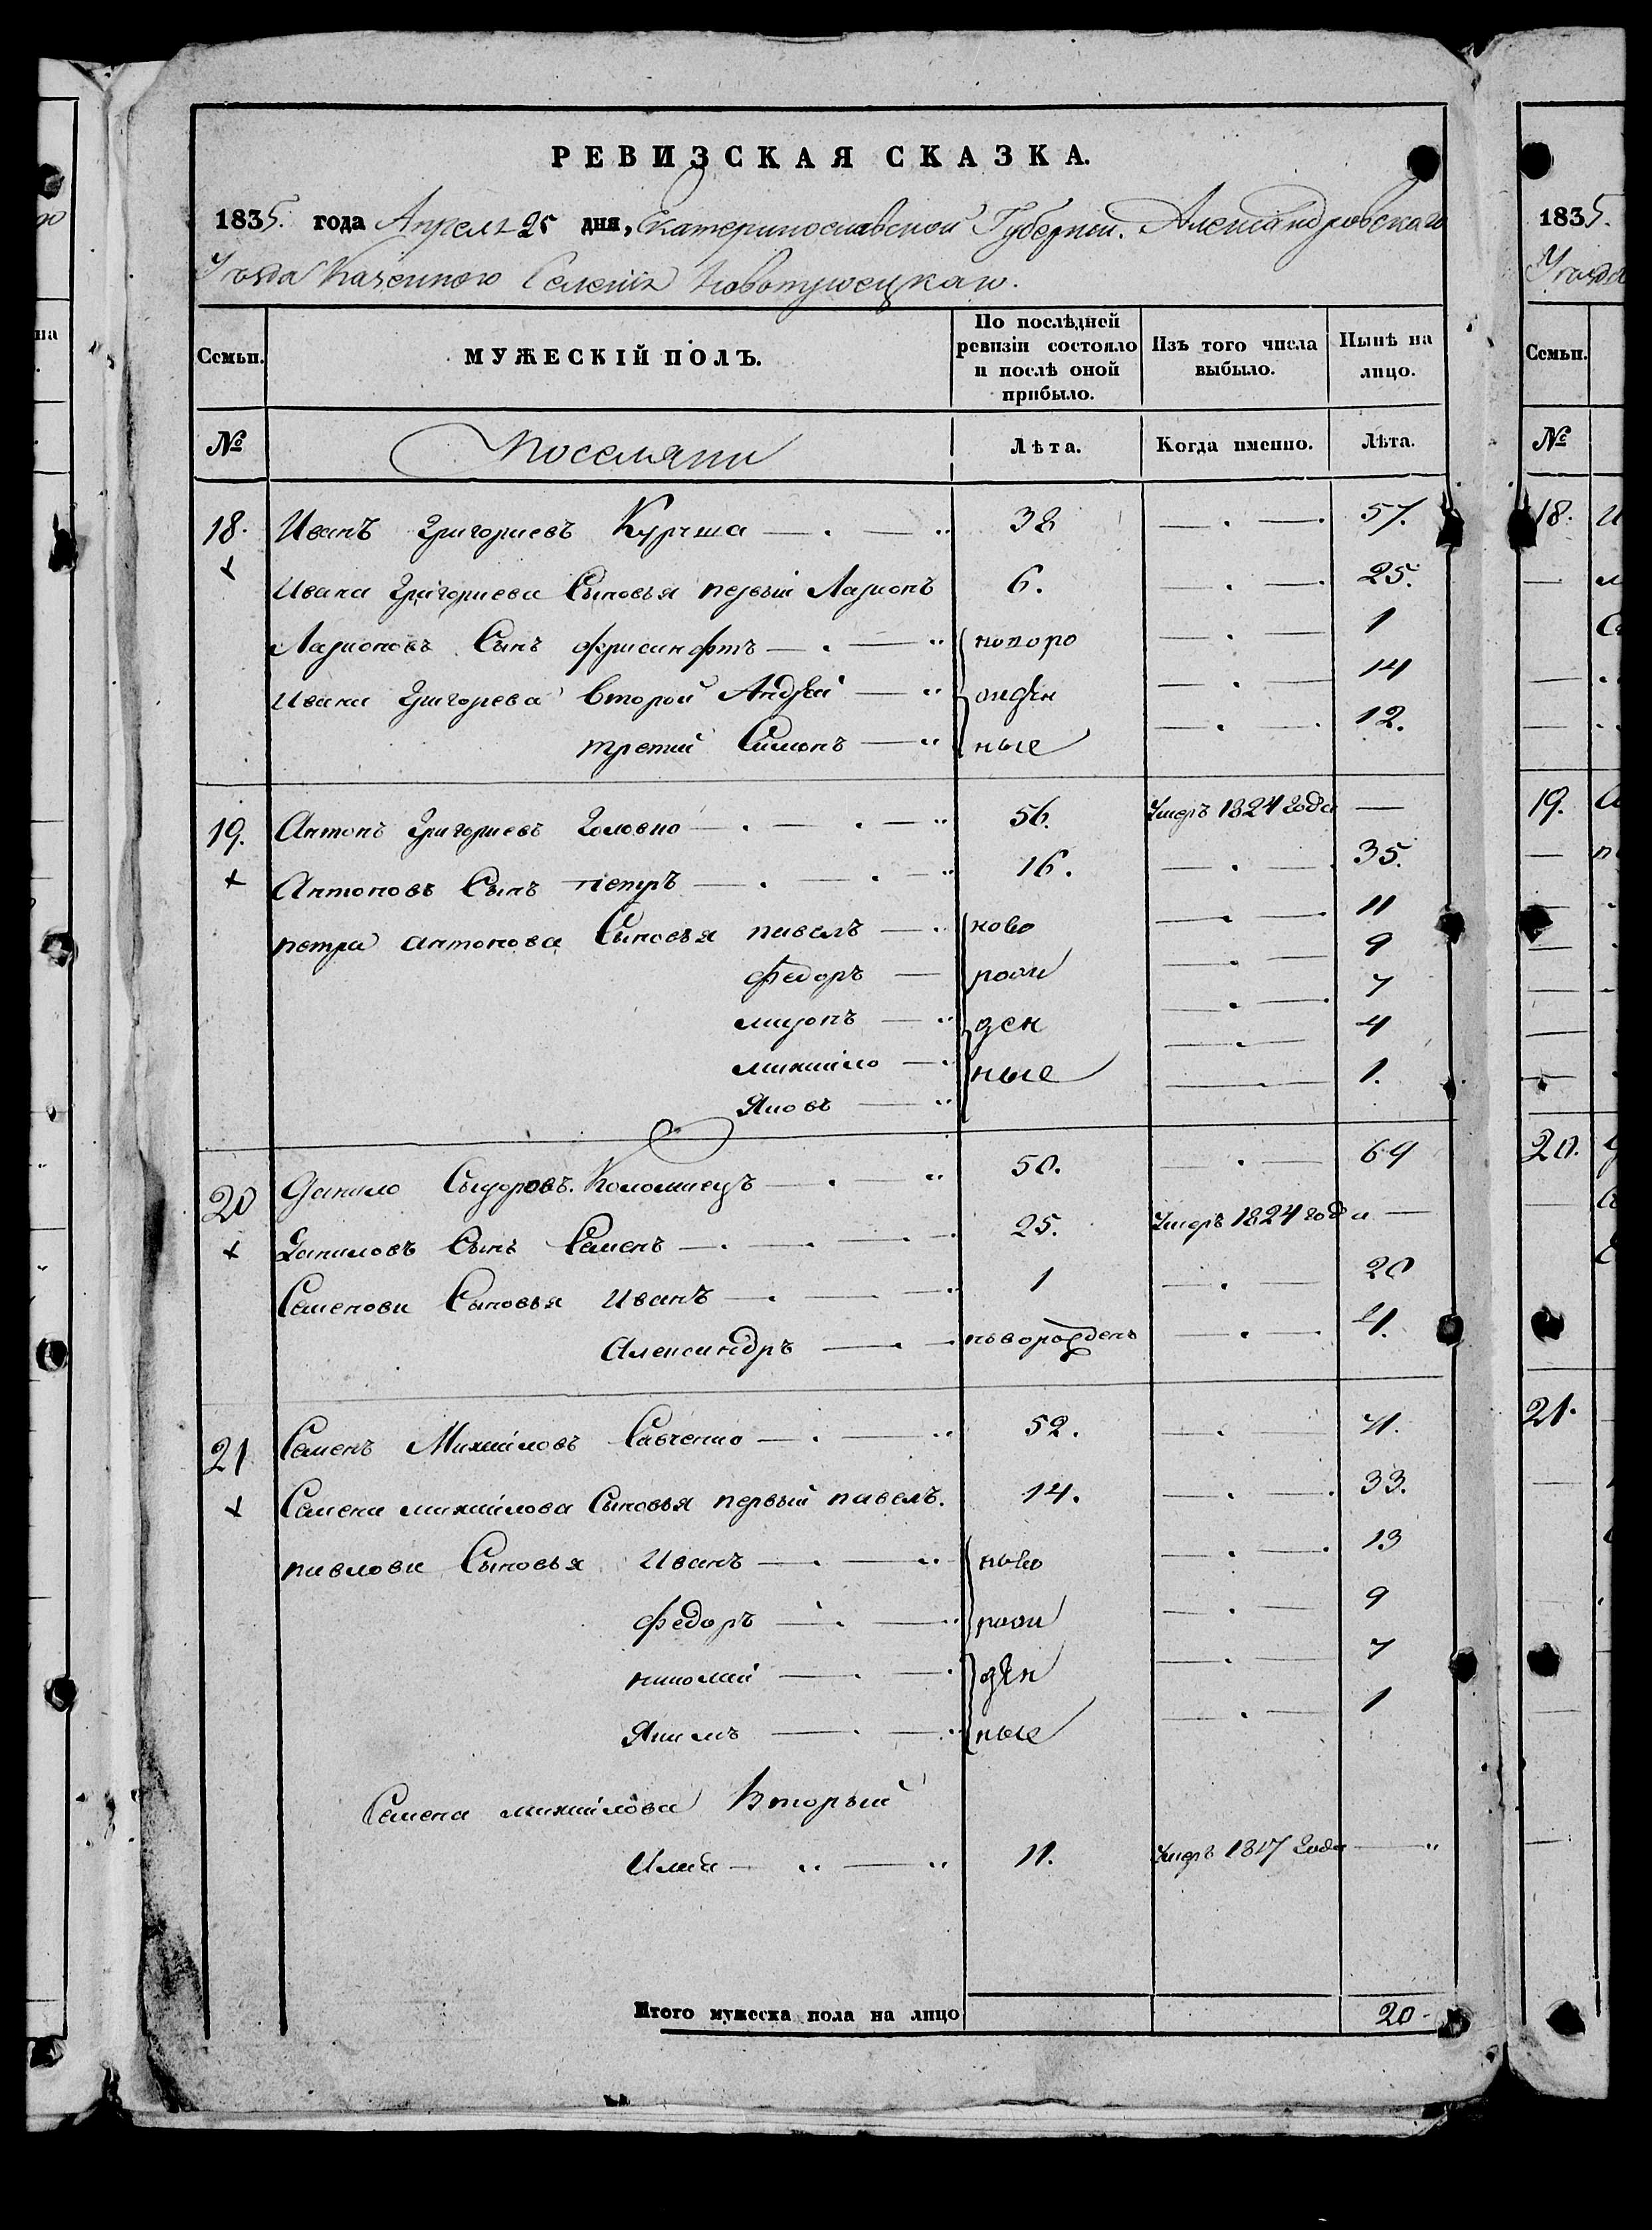 РЕВИЗСКАЯ СКАЗКА.
1835. года Апреля 25 дня, Екатеринославской Губернии. Александровскаго
Уезда Казенного Селенія
Семьи. МУЖЕСКІЙ ПОЛЪ. По послѣдней ревизіи состояло и послѣ оной прибыло. Изъ того числа выбыло. Нынѣ на лицо.
№ Поселяни Лѣта. Когда именно. Лѣта.
18. Иванъ Григориевъ 38 — . — . 57.
х Ивана Григориева Сыновья первый Ларионъ 6. — . — . 25.
Ларионовъ Сынъ — . — „ новоро — . — 1
Ивана Григорева второй Андрей — „ жден — . — 14
третий Симонъ — „ ные — . — . 12.
19. Антонъ Григориевъ Головко — . — . — „ 56. Умеръ 1824 Года —
х Антоновъ Сынъ петръ — . — . — „ 16. — . — . 35.
петра антонова Сыновья павелъ — „ ново — . — . 11
федоръ — рож — . — 9
миронъ — „ ден — . — . 7
михайло — „ ные — . — 4
Яковъ — „ — . — 1.
20 Данило Сыдоровъ. Коломиецъ — . — „ 50. — . — 69
х Даниловъ Сынъ Семенъ — . — . — . — . 25. Умеръ 1824 года —
Семенови Сыновья Иванъ — . — — . 1 — . — 20
Александръ — . — новорожденъ — . — . 4.
21 Семенъ Михайловъ Савченко — . — „ 52. — . — 71.
х Семена михайлова Сыновья первый павелъ. 14. — . — . 33.
павлови Сыновья Иванъ — . — „ ново — . — . 13
федоръ — . — „ рож — . — 9
николай — . — . ден — . — 7
Якимъ — . — „ ные — . — 1
Семена михайлова Вторый
Илья — „ — „ 11. Умеръ 1817 Года — „
Итого мужеска пола на лицо 20.
1835.
Уезда
Семьи.
№
18.
19.
20.
21.